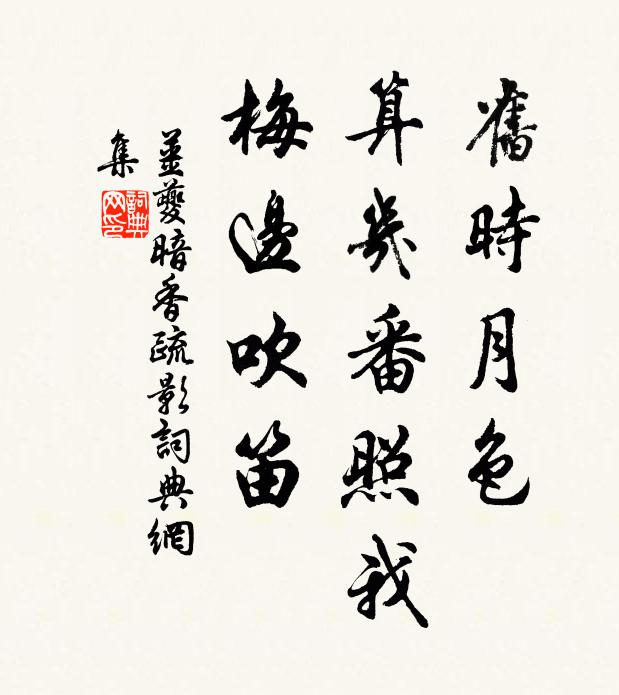 舊時月色
算幾番照我
梅邊吹笛
姜夔暗香疏影詞典網
集
詞典
网印